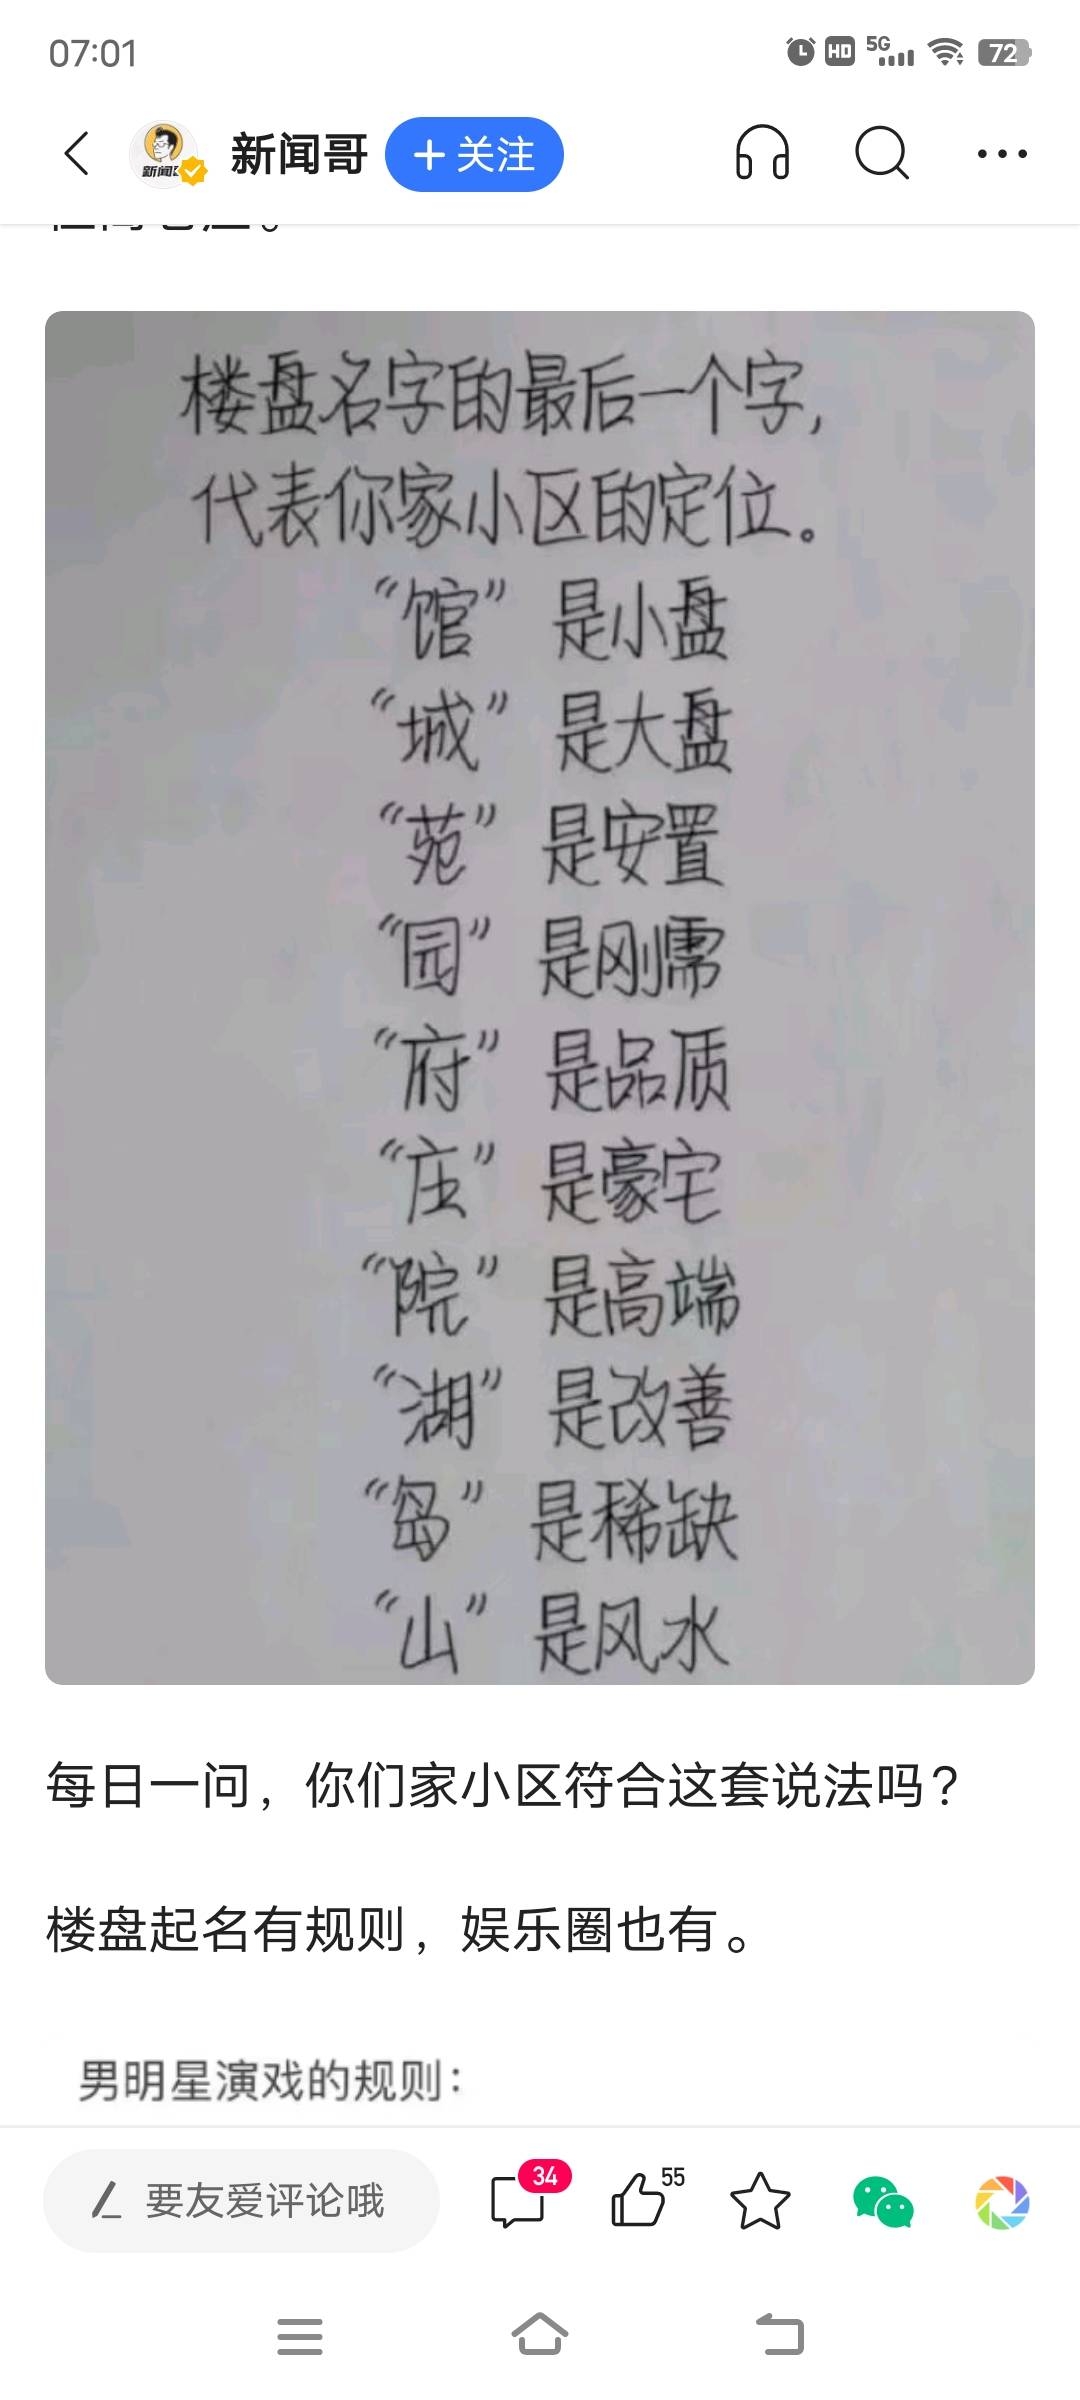 07:01
HD 5G 72
新闻哥
+关注
楼盘名字的最后一个字,
代表你家小区的定位。
“馆” 是小盘
“城” 是大盘
“苑” 是安置
“园” 是刚需
“府” 是品质
“庄” 是豪宅
“院” 是高端
“湖” 是改善
“岛” 是稀缺
“山” 是风水
每日一问，你们家小区符合这套说法吗？
楼盘起名有规则，娱乐圈也有。
男明星演戏的规则：
要友爱评论哦
34
55